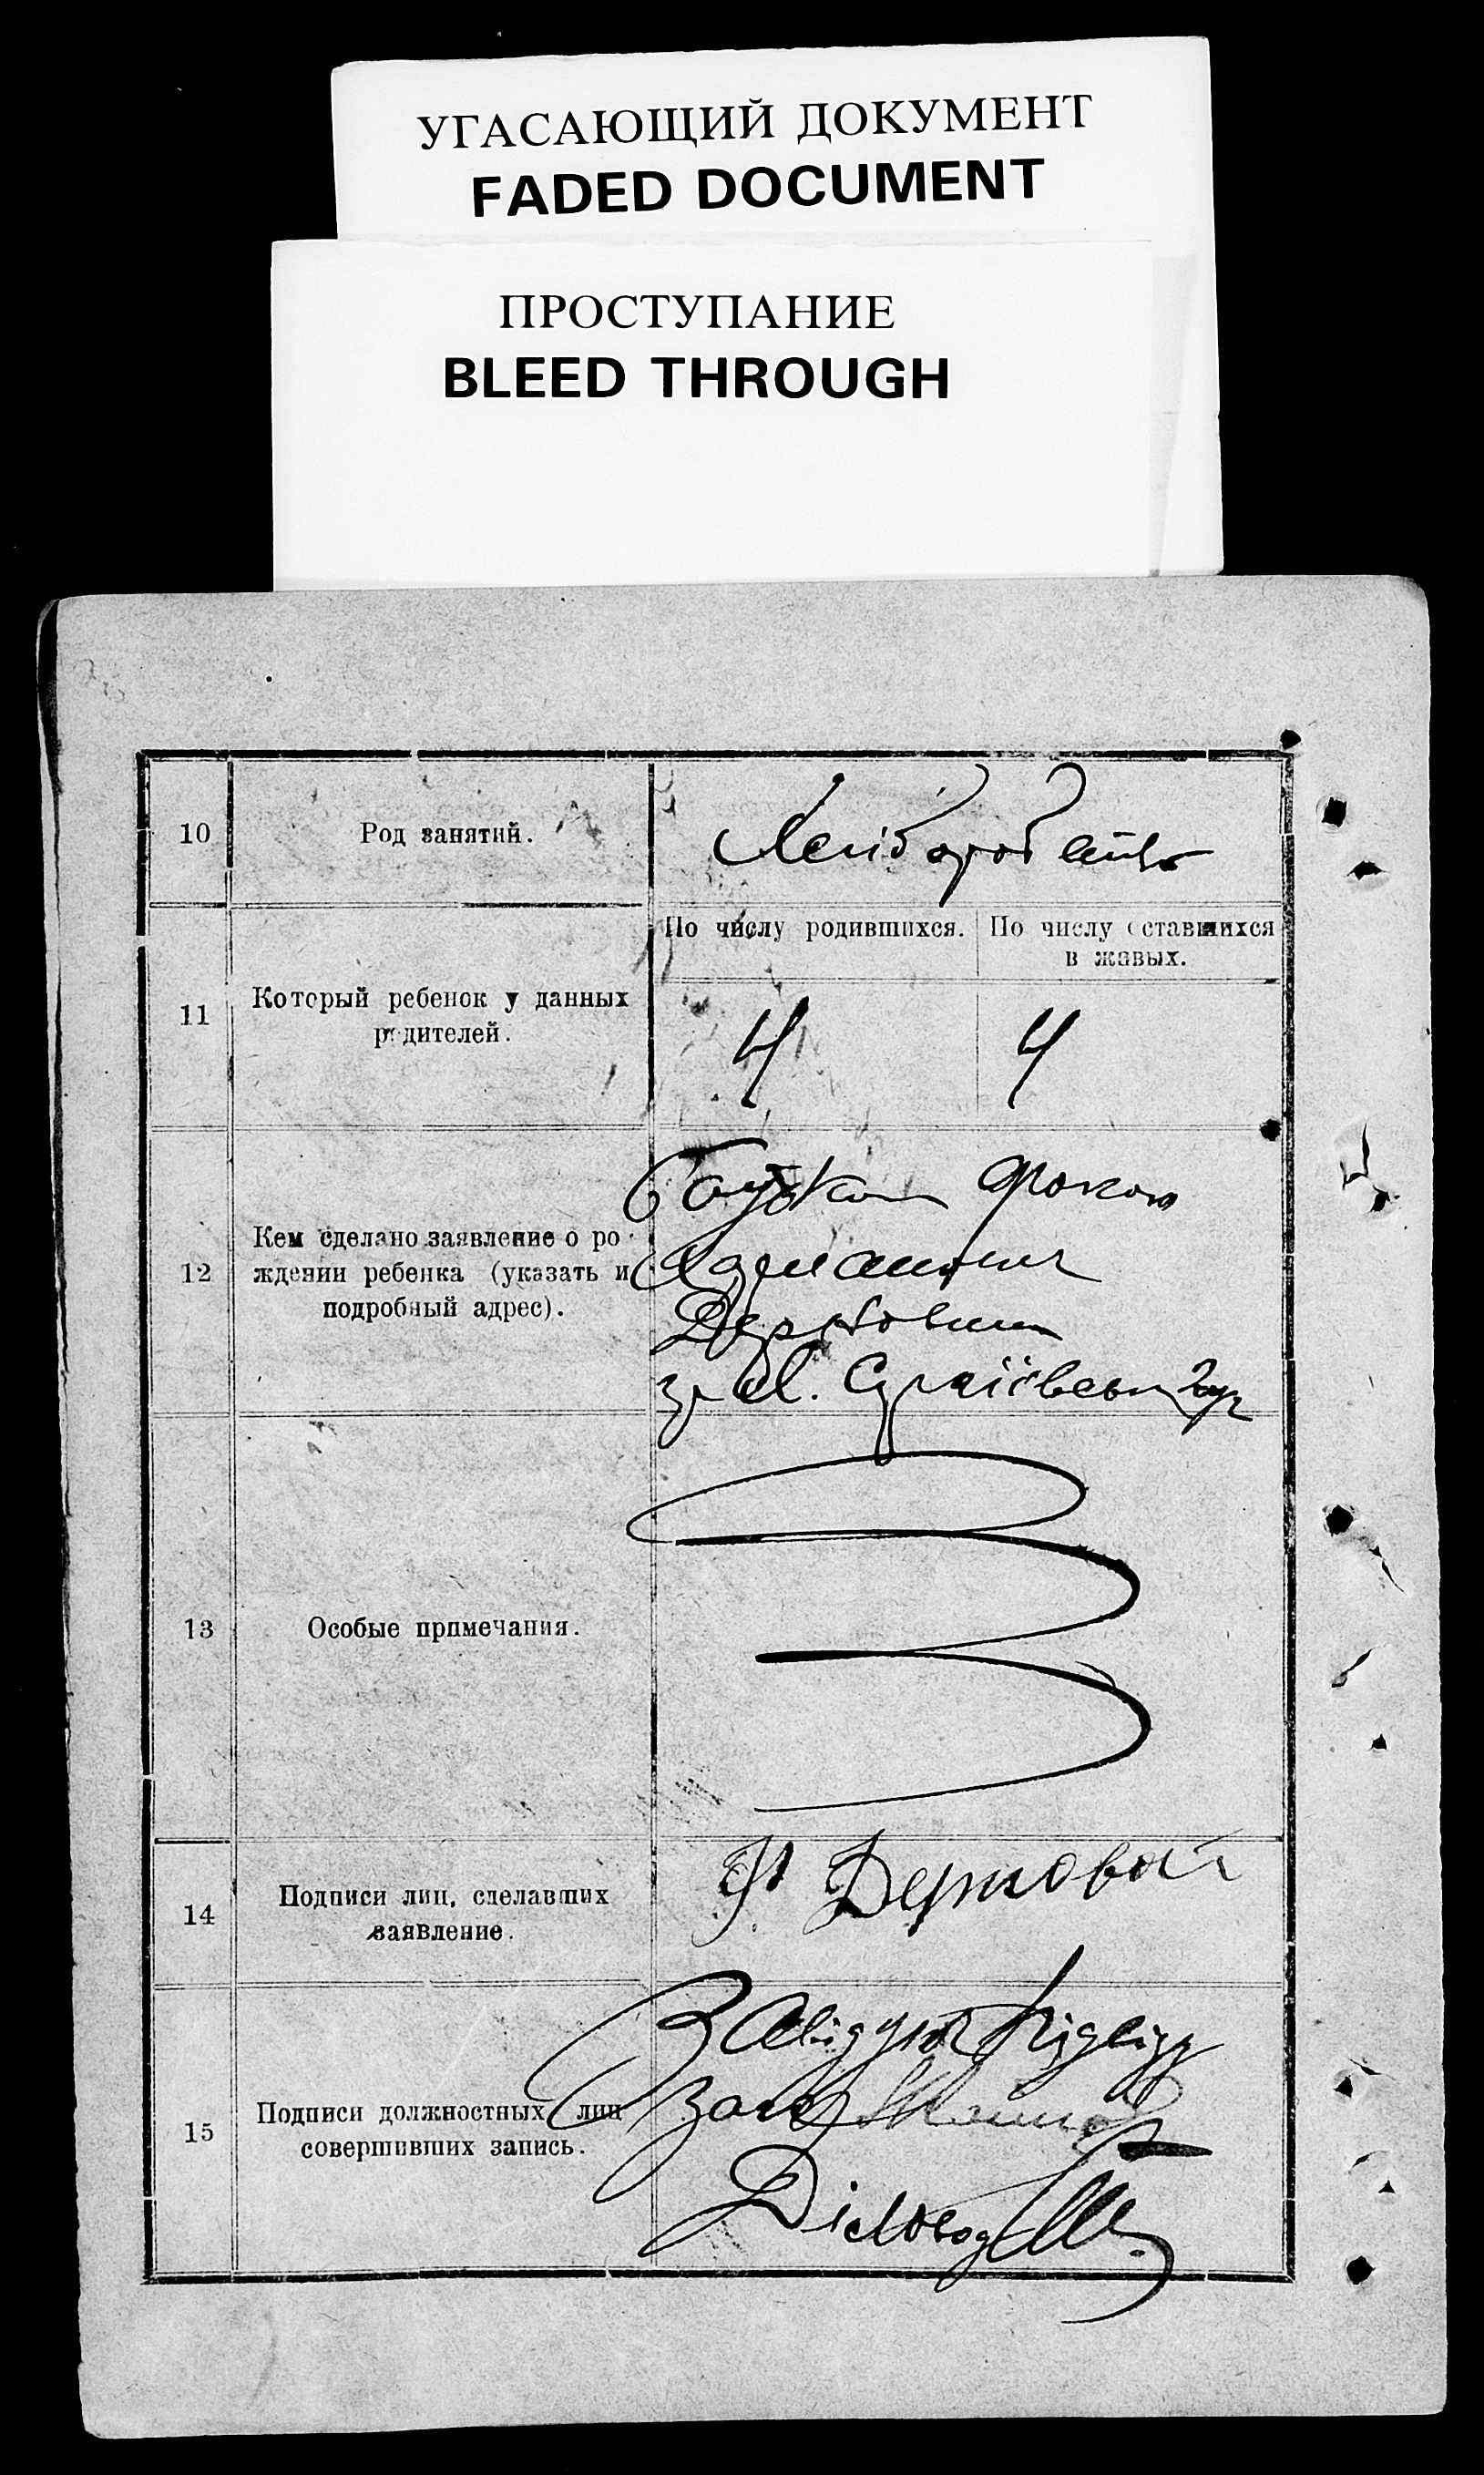 УГАСАЮЩИЙ ДОКУМЕНТ
FADED DOCUMENT
ПРОСТУПАНИЕ
BLEED THROUGH
10
Род занятий.
Хлібороб
11
Который ребенок у данных
родителей.
По числу родившихся.
По числу оставшихся
в живых.
4
4
12
Кем сделано заявление о ро-
ждении ребенка (указать и
подробный адрес).
Батьком
13
Особые примечания.
14
Подписи лиц, сделавших
заявление.
15
Подписи должностных лиц
совершивших запись.
Завідующ
Діловод